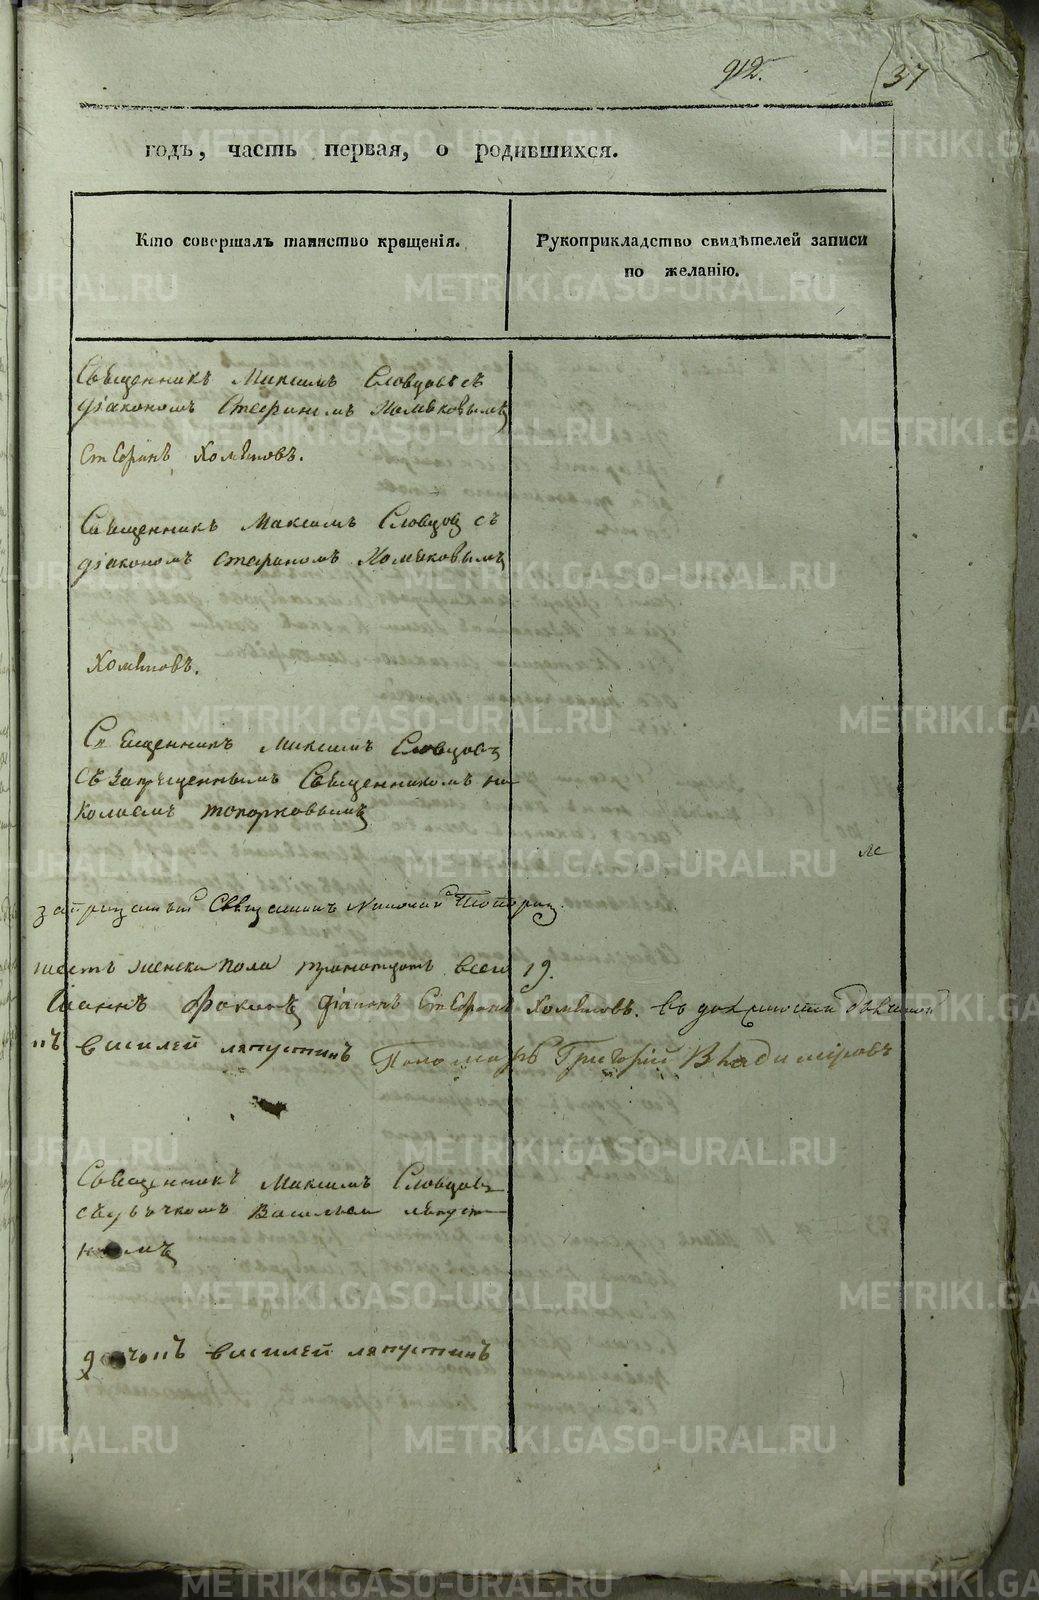 912. 37
годъ, часть первая, о родившихся.
Кто совершалъ таинство крещенія.
Рукоприкладство свидѣтелей записи
по желанію.
Священникъ Максимъ Словцовъ съ
діакономъ Стефаномъ Хомяковымъ
Стефанъ Хомяковъ.
Священникъ Максимъ Словцов съ
діакономъ Стефаномъ Хомяковымъ
Хомяковъ.
Священникъ Максимъ Словцовъ
съ запрещеннымъ Священникомъ Ни
колаемъ Топорковымъ
Священникъ Николай
женска пола всего 19.
Іоаннъ діаконъ Стефанъ Хомяковъ. въ должности
Василей Лапустинъ Пономарь Григорій Владиміровъ
Священникъ Максимъ Словцовъ
съ Василь Лапуст
нымъ
Василей Лапустинъ
METRIKI.GASO-URAL.RU